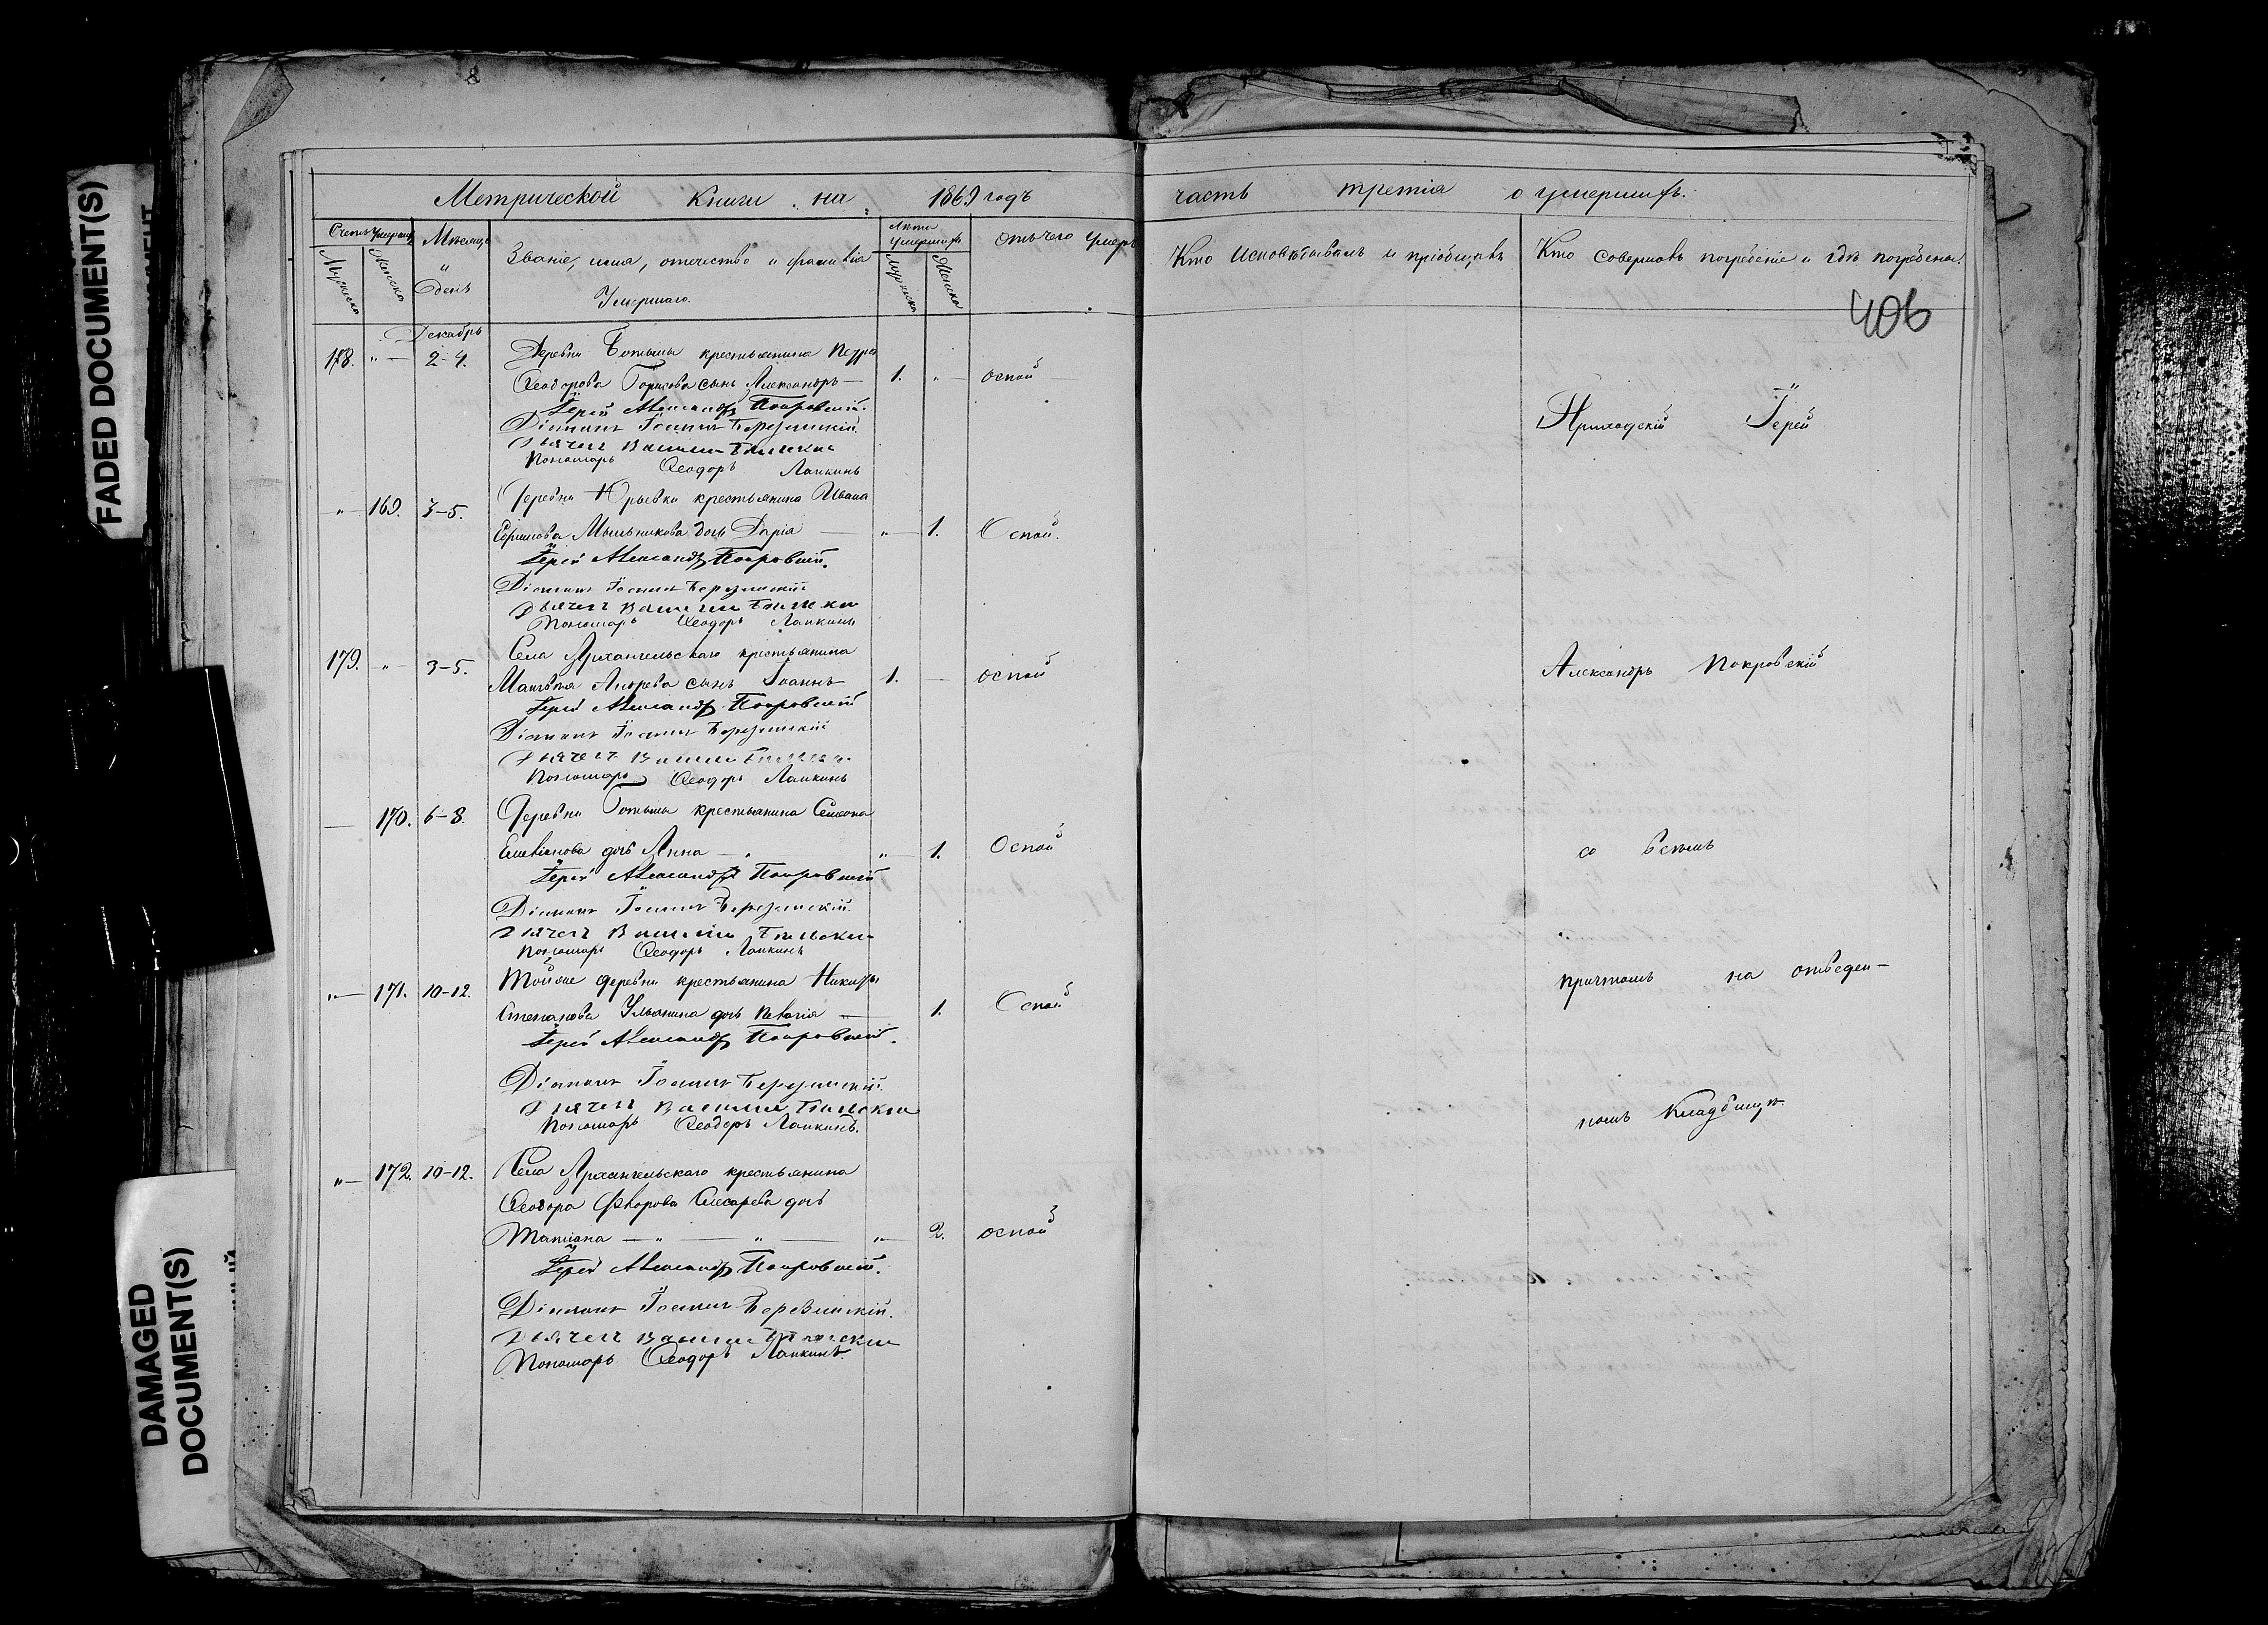 FADED DOCUMENT(S)
DAMAGED DOCUMENT(S)
Метрической книги на 1869 годъ
часть третія о умершихъ.
Счетъ умерш.
Мужеска
Женска
Мѣсяцъ и день
Званіе, имя, отечество и фамилія
Умершаго.
Лѣта умершихъ
Мужеска
Женска
Отъ чего умеръ
Кто исповѣдывалъ и пріобщилъ
Кто совершалъ погребеніе и гдѣ погребены.
406
Декабрь
178. " — 2-4. Деревни крестьянина Петра
Ѳеодорова Борисова сынъ Александръ — 1. " — оспой
Іерей Александръ Покровскій.
Діаконъ Іоаннъ Березинскій.
Дьячекъ Василій
Пономарь Ѳеодоръ Лапкинъ
" — 169. 3-5. Деревни Юрьевки крестьянина Ивана
Мыльникова дочь Дарія — " — 1. Оспой.
Іерей Александръ Покровскій.
Діаконъ Іоаннъ Березинскій
Дьячекъ Василій
Пономарь Ѳеодоръ Лапкинъ
179. " — 3-5. Села Архангельскаго крестьянина
Матвѣя Андрева сынъ Іоаннъ 1. — оспой
Іерей Александръ Покровскій
Діаконъ Іоаннъ Березинскій
Дьячекъ Василій
Пономарь Ѳеодоръ Лапкинъ
— 170. 6-8. Деревни крестьянина Симеона
Емеліанова дочь Анна — " — 1. Оспой
Іерей Александръ Покровскій
Діаконъ Іоаннъ Березинскій.
Дьячекъ Василій
Пономарь Ѳеодоръ Лапкинъ
" — 171. 10-12. Тойже деревни крестьянина Никиты
Степанова Ульянина дочь Пелагія — 1. Оспой
Іерей Александръ Покровскій.
Діаконъ Іоаннъ Березинскій.
Дьячекъ Василій
Пономарь Ѳеодоръ Лапкинъ.
" — 172. 10-12. Села Архангельскаго крестьянина
Ѳеодора Флорова Слесарева дочь
Татіана — " — " — " — 2. оспой
Іерей Александръ Покровскій.
Діаконъ Іоаннъ Березинскій.
Дьячекъ Василій
Пономарь Ѳеодоръ Лапкинъ.
Приходскій Іерей
Александръ Покровскій
со всѣмъ
причтомъ на отведен-
номъ кладбищѣ.